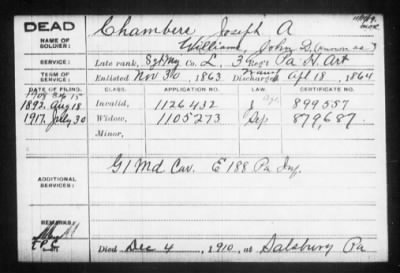 DEAD
NAME OF SOLDIER: Chambers, Joseph A
Williams, John D. (known as)
SERVICE: Late rank, Co. L, 3 Reg't Pa H. Art
TERM OF SERVICE: Enlisted Nov 30, 1863 Discharged Apl 18, 1864
DATE OF FILING. CLASS. APPLICATION NO. LAW. CERTIFICATE NO.
1892. Aug 18 Invalid, 1126432 899557
1917. July 30 Widow, 1105273 879,687
Minor,
ADDITIONAL SERVICES: G 1 Md Cav. E 188 Pa Inf.
REMARKS:
Died Dec 4, 1910, at Salsburg Pa